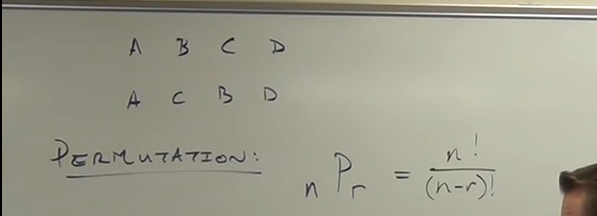 A B C D
A C B D
PERMUTATION: nPr = n!/(n-r)!